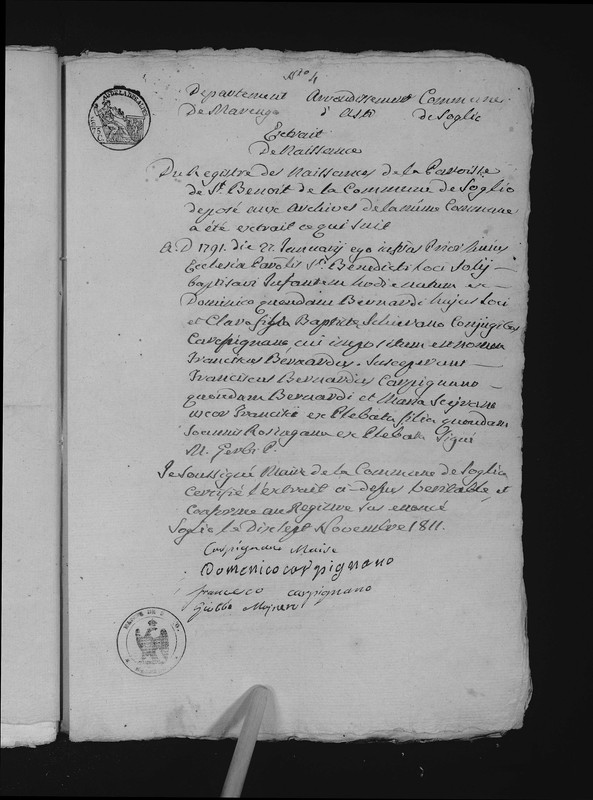 N.ro 4
Departement Arrondissement Commune
De Marengo d'Asti de Soglio
Extrait
De Naissance
Du Registre des Naissances de la Paroisse
de S.t Benoit de la Commune de Soglio
deposé aux Archives de la même Commune
a été extrait ce qui suit
A. D. 1791. die 27. Januarij ego infras Prior huius
Ecclesia Parolis S.ti Benedicti Loci Solij
baptisavi Infantem hodie natum ex
Dominico quondam Bernardi hujus Loci
et Clara filia Baptista Schierano Conjugibus
Carpignano, cui impositum est nomen
Franciscus Bernardus. Susceperunt
Franciscus Bernardus Carpignano
quondam Bernardi et Maria
uxor Francisci ex Plebata filia quondam
Joannis ex Plebata Signé
M. Gerbi P.
Je Soussigné Maire de la Commune de Soglio
Certifie l'extrait ci-dessus veritable, et
Conforme au Registre sus enoncé
Soglio le Dix sept Novembre 1811.
Carpignano Maire
Domenico carpignano
francesco carpignano